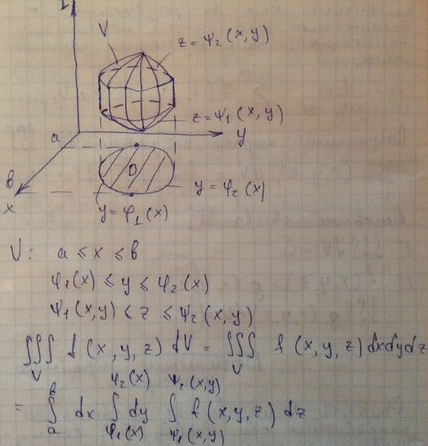 z
V
z = ψ₂(x,y)
z = ψ₁(x,y)
a
y
D
b
x
y = φ₂(x)
y = φ₁(x)
V: a ≤ x ≤ b
φ₁(x) ≤ y ≤ φ₂(x)
ψ₁(x,y) ≤ z ≤ ψ₂(x,y)
∭_V f(x,y,z) dV = ∭_V f(x,y,z) dxdydz
= ∫_a^b dx ∫_{φ₁(x)}^{φ₂(x)} dy ∫_{ψ₁(x,y)}^{ψ₂(x,y)} f(x,y,z) dz